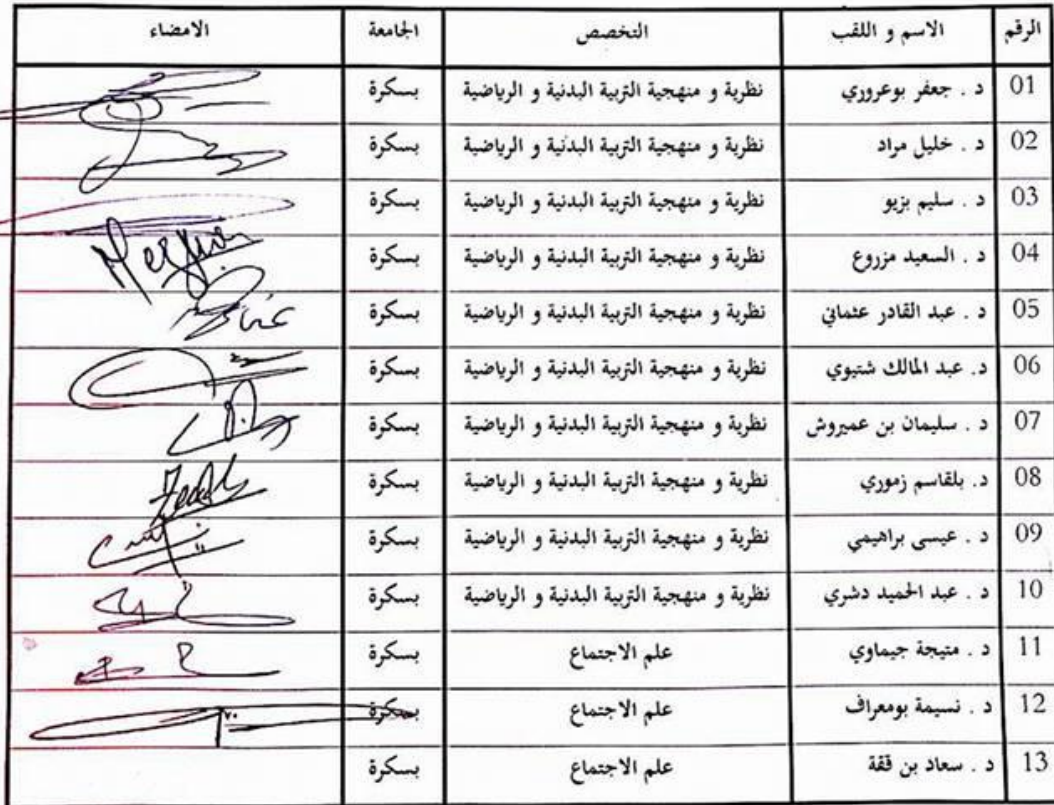 الرقم الاسم و اللقب التخصص الجامعة الامضاء
01 د . جعفر بوعروري نظرية و منهجية التربية البدنية و الرياضية بسكرة
02 د . خليل مراد نظرية و منهجية التربية البدنية و الرياضية بسكرة
03 د . سليم بزيو نظرية و منهجية التربية البدنية و الرياضية بسكرة
04 د . السعيد مزروع نظرية و منهجية التربية البدنية و الرياضية بسكرة
05 د . عبد القادر عثماني نظرية و منهجية التربية البدنية و الرياضية بسكرة
06 د. عبد المالك شتيوي نظرية و منهجية التربية البدنية و الرياضية بسكرة
07 د . سليمان بن عميروش نظرية و منهجية التربية البدنية و الرياضية بسكرة
08 د. بلقاسم زموري نظرية و منهجية التربية البدنية و الرياضية بسكرة
09 د . عيسى براهيمي نظرية و منهجية التربية البدنية و الرياضية بسكرة
10 د . عبد الحميد دشري نظرية و منهجية التربية البدنية و الرياضية بسكرة
11 د . متيجة جيماوي علم الاجتماع بسكرة
12 د . نسيمة بومعراف علم الاجتماع بسكرة
13 د . سعاد بن ققة علم الاجتماع بسكرة